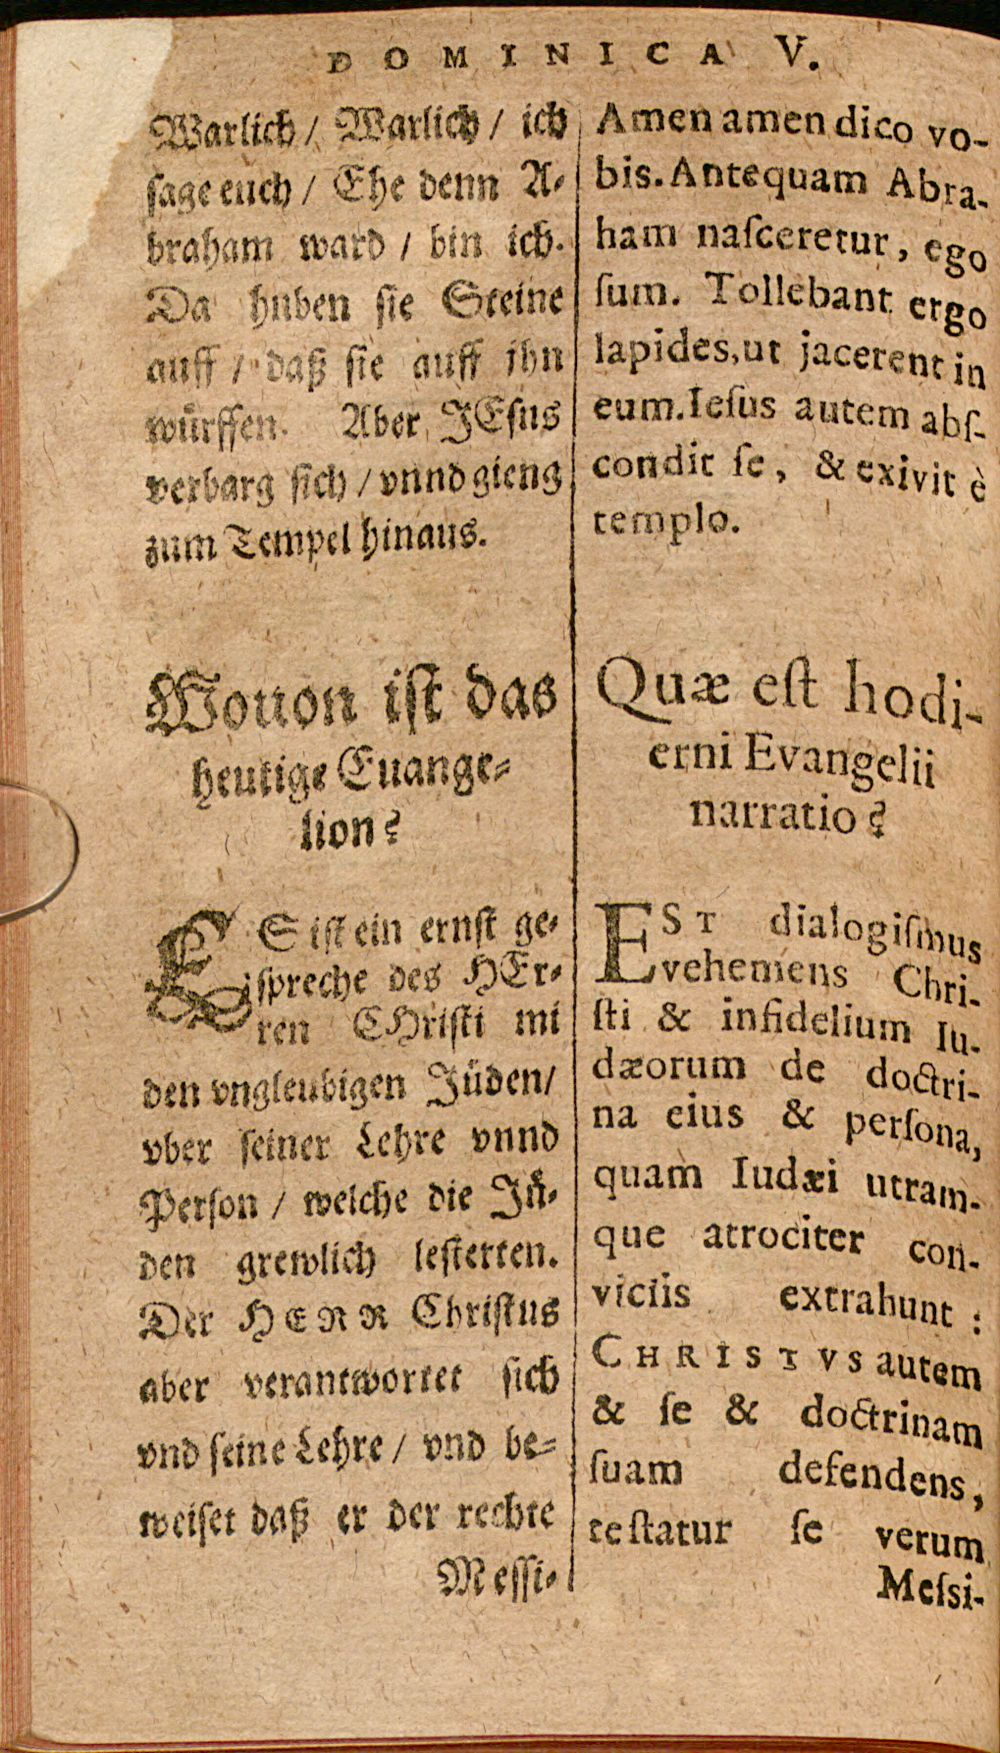 DOMINICA V.
Warlich / Warlich / ich
sage euch / Ehe denn A⸗
braham ward / bin ich.
Da huben sie Steine
auff / daß sie auff ihn
würffen. Aber JEsus
verbarg sich / vnnd gieng
zum Tempel hinaus.
Wouon ist das
heutige Euange⸗
lion?
ES ist ein ernst ge⸗
spreche des HEr⸗
ren CHristi mi
den vngleubigen Jüden /
vber seiner Lehre vnnd
Person / welche die Jü⸗
den grewlich lesterten.
Der HERR Christus
aber verantwortet sich
vnd seine Lehre / vnd be⸗
weiset daß er der rechte
Messi⸗
Amen amen dico vo-
bis. Antequam Abra-
ham naſceretur, ego
ſum. Tollebant ergo
lapides, ut jacerent in
eum. Ieſus autem abſ-
condit ſe, & exivit è
templo.
Quæ eſt hodi-
erni Evangelii
narratio?
EST dialogiſmus
vehemens Chri-
ſti & infidelium Iu-
dæorum de doctri-
na eius & perſona,
quam Iudæi utram-
que atrociter con-
viciis extrahunt:
CHRISTVS autem
& ſe & doctrinam
ſuam defendens,
teſtatur ſe verum
Meſsi-